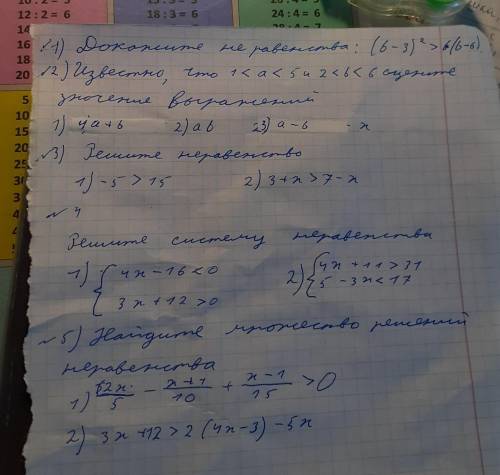 12:2=6
18:3=6
24:4=6
№1) Докажите неравенства: (б-3)² > б(б-6)
№2) Известно, что 1<a<5 и 2<b<6 оцените
значение выражений
1) 4a+b 2) ab 3) a-b -x
№3) Решите неравенство
1) -5 > 15 2) 3+x > 7-x
№ 4
Решите систему неравенства
1) { 4x-16<0 2) { 4x+11>31
3x+12>0 5-3x<17
№5) Найдите множество решений
неравенства
1) 2x/5 - x+1/10 + x-1/15 > 0
2) 3x+12 > 2(4x-3) -5x